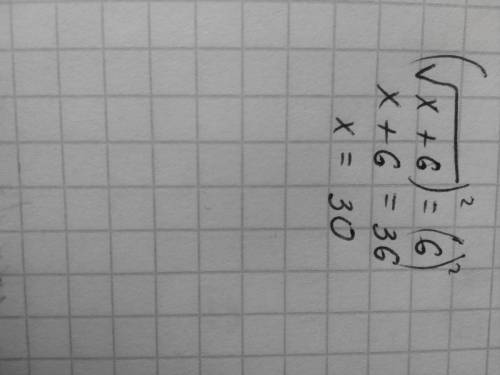 (√x + 6)² = (6)²
x + 6 = 36
x = 30